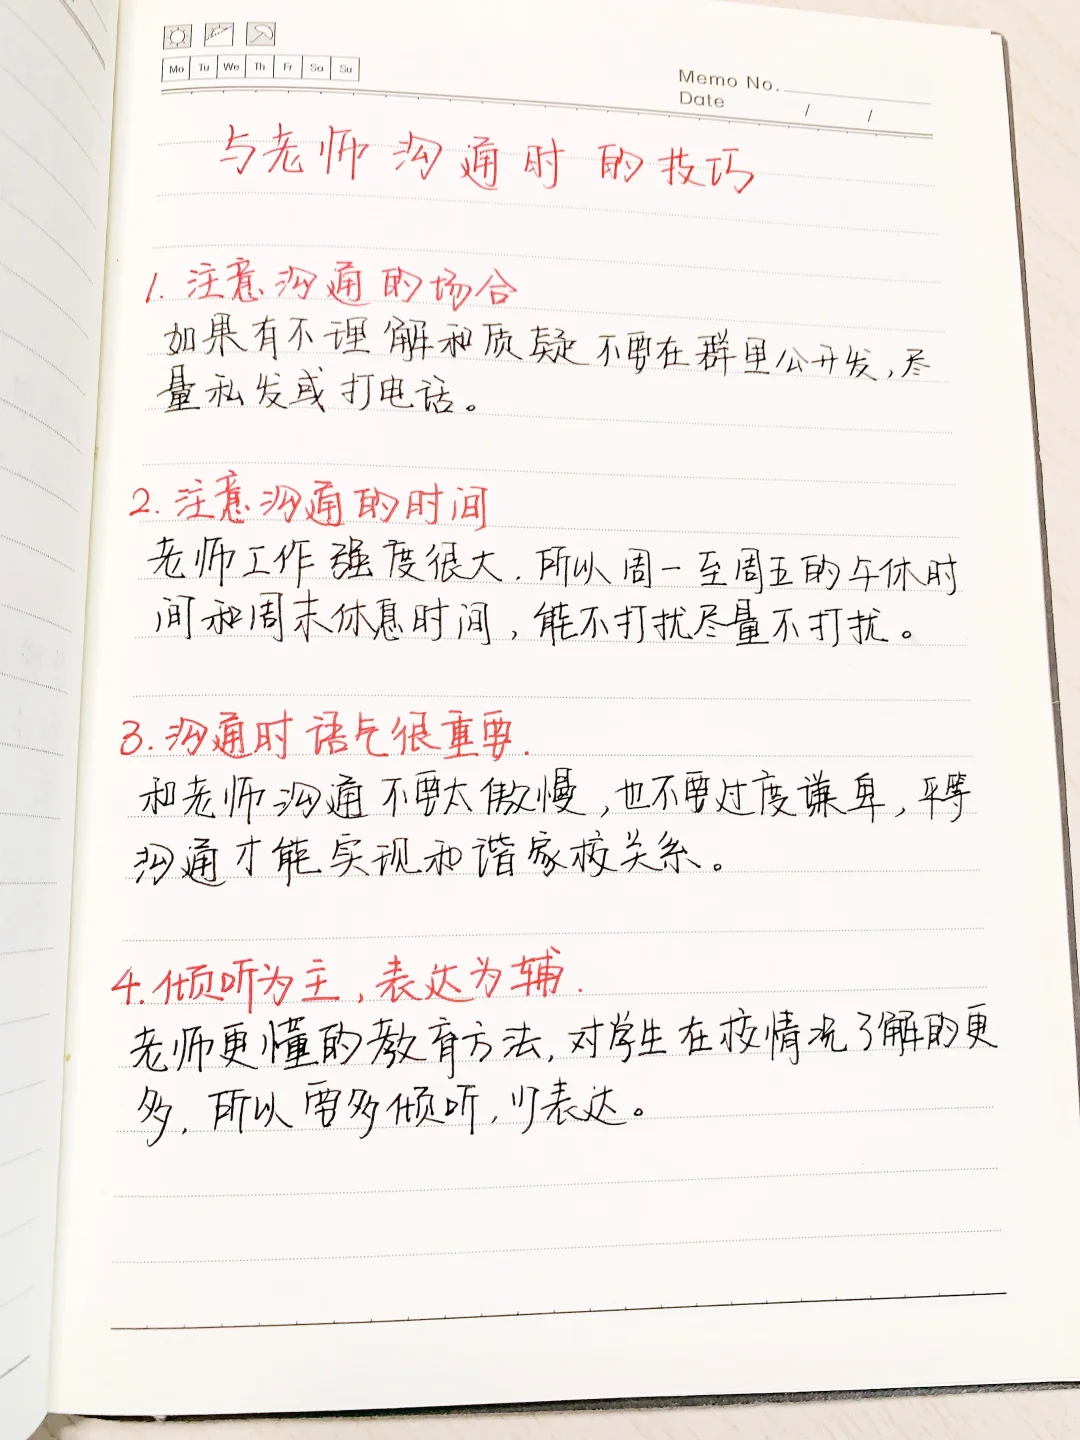 Mo Tu We Th Fr Sa Su
Memo No.
Date / /
与老师沟通时的技巧
1. 注意沟通的场合
如果有不理解和质疑不要在群里公开发,尽
量私发或打电话。
2. 注意沟通的时间
老师工作强度很大.所以周一至周五的午休时
间和周末休息时间,能不打扰尽量不打扰。
3. 沟通时语气很重要.
和老师沟通不要太傲慢,也不要过度谦卑,平等
沟通才能实现和谐家校关系。
4. 倾听为主,表达为辅.
老师更懂的教育方法,对学生在校情况了解的更
多,所以要多倾听,少表达。